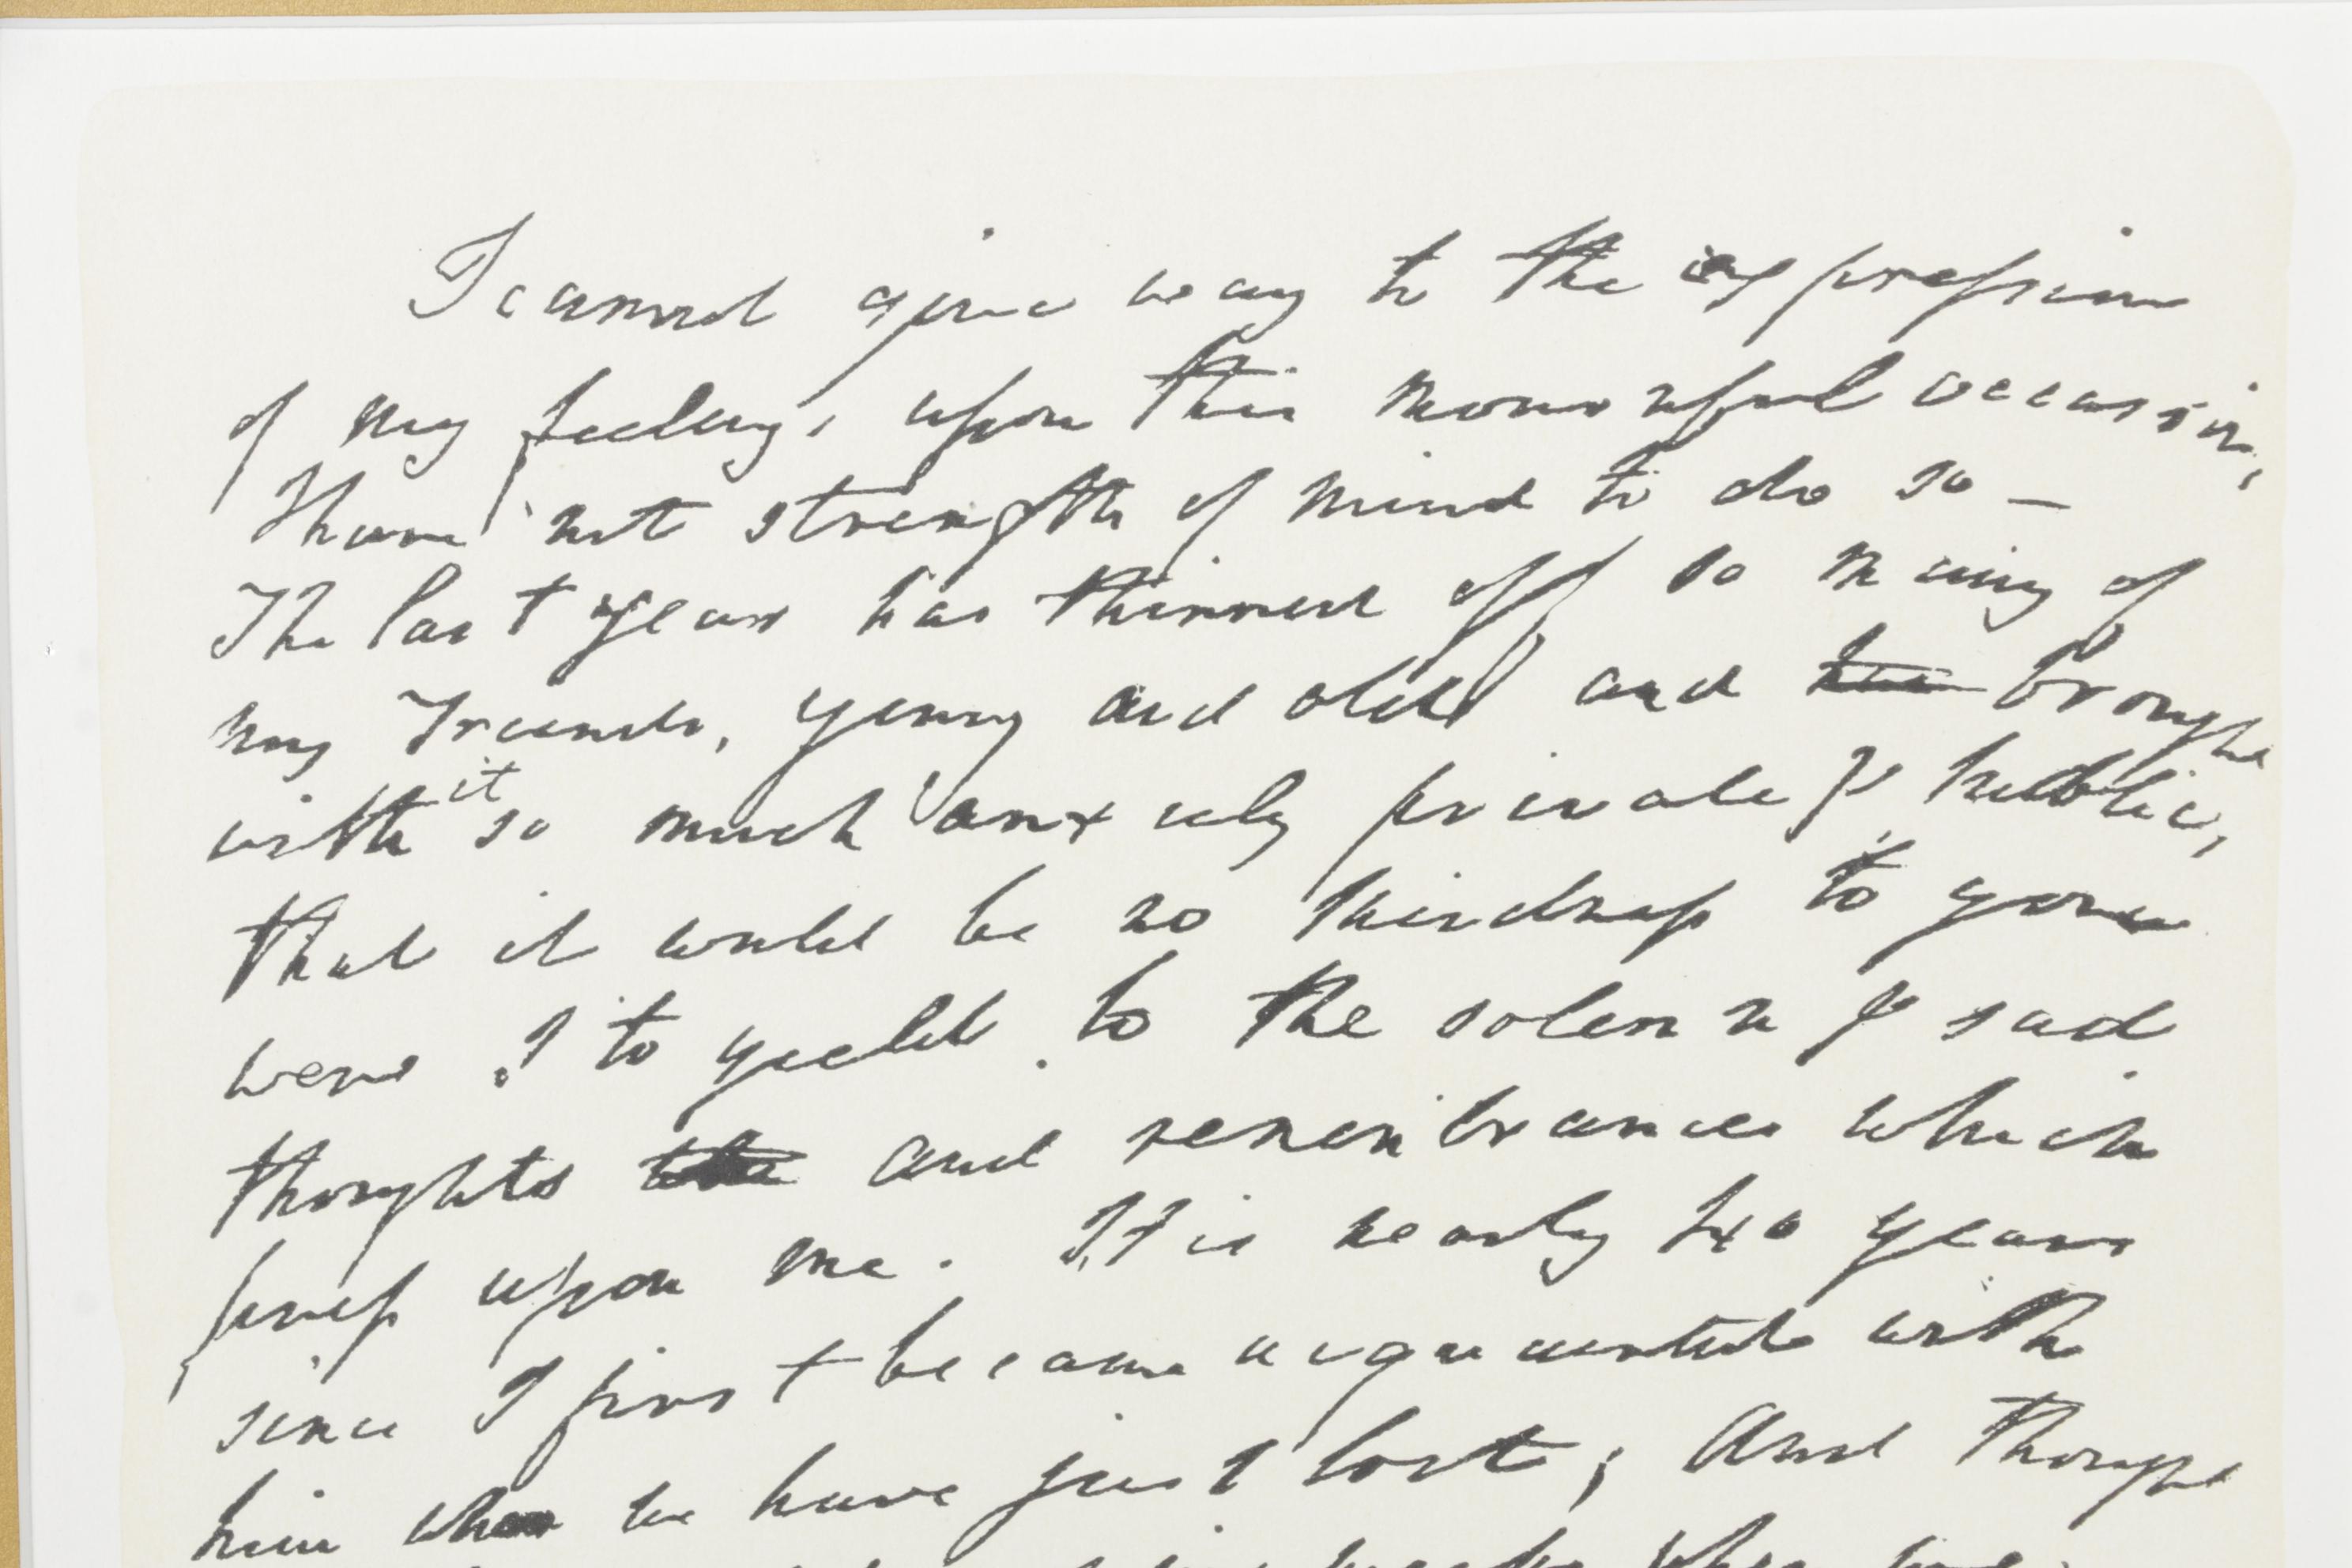 I cannot give way to the expression
of my feelings upon this mournful occasion,
I have not strength of mind to do so —
The last year has thinned off so many of
my Friends, young and old and brought
with it so much anxiety private & public,
that it would be no kindness to you
were I to yield to the solemn & sad
thoughts and remembrances which
press upon me. It is nearly 40 years
since I first became acquainted with
him who we have just lost; And though
weeks when we